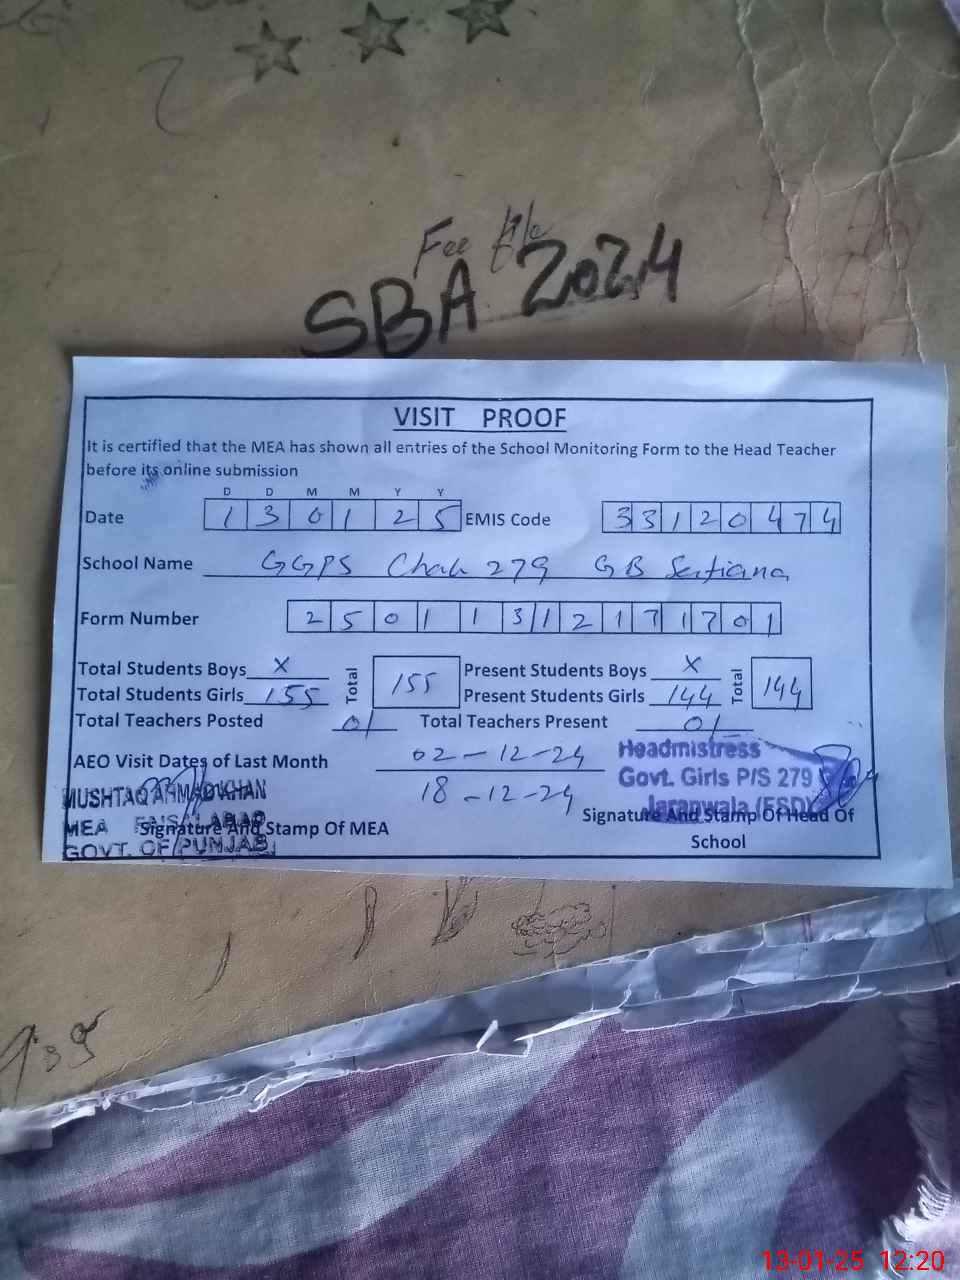 Fee file
SBA 2024
VISIT PROOF
It is certified that the MEA has shown all entries of the School Monitoring Form to the Head Teacher
before its online submission
D D M M Y Y
Date 1 3 0 1 2 5 EMIS Code 3 3 1 2 0 4 7 4
School Name GGPS Chak 279 GB Satiana
Form Number 2 5 0 1 1 3 1 2 1 7 1 7 0 1
Total Students Boys X Total 155 Present Students Boys X Total 144
Total Students Girls 155 Present Students Girls 144
Total Teachers Posted 01 Total Teachers Present 01
AEO Visit Dates of Last Month 02-12-24
18-12-24
Headmistress
Govt. Girls P/S 279
Jaranwala (FSD)
MUSHTAQ AHMAD KHAN
MEA FAISALABAD
GOVT. OF PUNJAB
Signature And Stamp Of MEA
Signature And Stamp Of Head Of
School
13-01-25 12:20